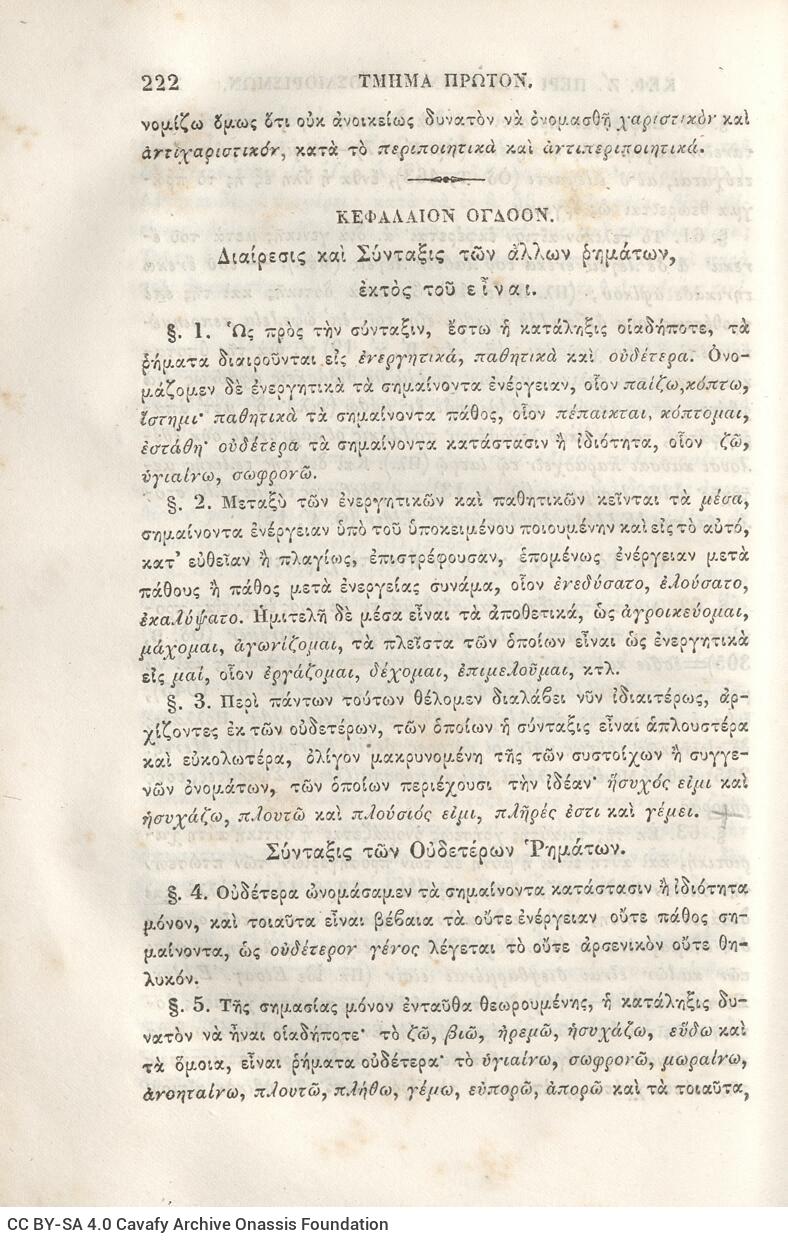 222 ΤΜΗΜΑ ΠΡΩΤΟΝ.
νομίζω ὅμως ὅτι οὐκ ἀνοικείως δυνατὸν νὰ ὀνομασθῇ χαριστικὸν καὶ
ἀντιχαριστικόν, κατὰ τὸ περιποιητικὰ καὶ ἀντιπεριποιητικά.
ΚΕΦΑΛΑΙΟΝ ΟΓΔΟΟΝ.
Διαίρεσις καὶ Σύνταξις τῶν ἄλλων ῥημάτων,
ἐκτὸς τοῦ εἶναι.
§. 1. Ὡς πρὸς τὴν σύνταξιν, ἔστω ἡ κατάληξις οἱαδήποτε, τὰ
ῥήματα διαιροῦνται εἰς ἐνεργητικά, παθητικὰ καὶ οὐδέτερα. Ὀνο-
μάζομεν δὲ ἐνεργητικὰ τὰ σημαίνοντα ἐνέργειαν, οἷον παίζω, κόπτω,
ἵστημι· παθητικὰ τὰ σημαίνοντα πάθος, οἷον πέπαικται, κόπτομαι,
ἐστάθη· οὐδέτερα τὰ σημαίνοντα κατάστασιν ἢ ἰδιότητα, οἷον ζῶ,
ὑγιαίνω, σωφρονῶ.
§. 2. Μεταξὺ τῶν ἐνεργητικῶν καὶ παθητικῶν κεῖνται τὰ μέσα,
σημαίνοντα ἐνέργειαν ὑπὸ τοῦ ὑποκειμένου ποιουμένην καὶ εἰς τὸ αὐτό,
κατ' εὐθεῖαν ἢ πλαγίως, ἐπιστρέφουσαν, ἑπομένως ἐνέργειαν μετὰ
πάθους ἢ πάθος μετὰ ἐνεργείας συνάμα, οἷον ἐνεδύσατο, ἐλούσατο,
ἐκαλύψατο. Ἡμιτελῆ δὲ μέσα εἶναι τὰ ἀποθετικά, ὡς ἀγροικεύομαι,
μάχομαι, ἀγωνίζομαι, τὰ πλεῖστα τῶν ὁποίων εἶναι ὡς ἐνεργητικὰ
εἰς μαί, οἷον ἐργάζομαι, δέχομαι, ἐπιμελοῦμαι, κτλ.
§. 3. Περὶ πάντων τούτων θέλομεν διαλάβει νῦν ἰδιαιτέρως, ἀρ-
χίζοντες ἐκ τῶν οὐδετέρων, τῶν ὁποίων ἡ σύνταξις εἶναι ἁπλουστέρα
καὶ εὐκολωτέρα, ὀλίγον μακρυνομένη τῆς τῶν συστοίχων ἢ συγγε-
νῶν ὀνομάτων, τῶν ὁποίων περιέχουσι τὴν ἰδέαν· ἥσυχός εἰμι καὶ
ἡσυχάζω, πλουτῶ καὶ πλούσιός εἰμι, πλῆρές ἐστι καὶ γέμει.
Σύνταξις τῶν Οὐδετέρων Ῥημάτων.
§. 4. Οὐδέτερα ὠνομάσαμεν τὰ σημαίνοντα κατάστασιν ἢ ἰδιότητα
μόνον, καὶ τοιαῦτα εἶναι βέβαια τὰ οὔτε ἐνέργειαν οὔτε πάθος ση-
μαίνοντα, ὡς οὐδέτερον γένος λέγεται τὸ οὔτε ἀρσενικὸν οὔτε θη-
λυκόν.
§. 5. Τῆς σημασίας μόνον ἐνταῦθα θεωρουμένης, ἡ κατάληξις δυ-
νατὸν νὰ ἦναι οἱαδήποτε· τὸ ζῶ, βιῶ, ἠρεμῶ, ἡσυχάζω, εὕδω καὶ
τὰ ὅμοια, εἶναι ῥήματα οὐδέτερα· τὸ ὑγιαίνω, σωφρονῶ, μωραίνω,
ἀνοηταίνω, πλουτῶ, πλήθω, γέμω, εὐπορῶ, ἀπορῶ καὶ τὰ τοιαῦτα,
CC BY-SA 4.0 Cavafy Archive Onassis Foundation